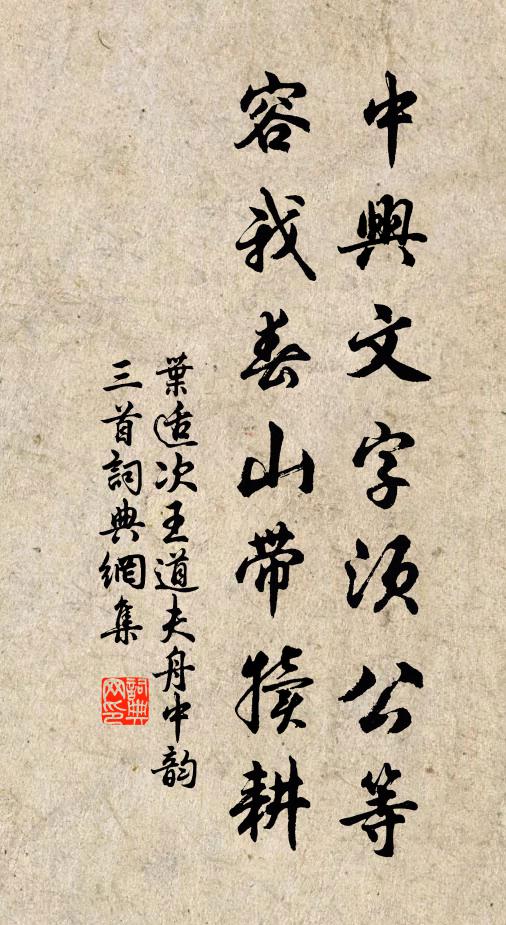 中興文字須公等
容我春山帶犢耕
葉适次王道夫舟中韵
三首詞典網集
詞典網印